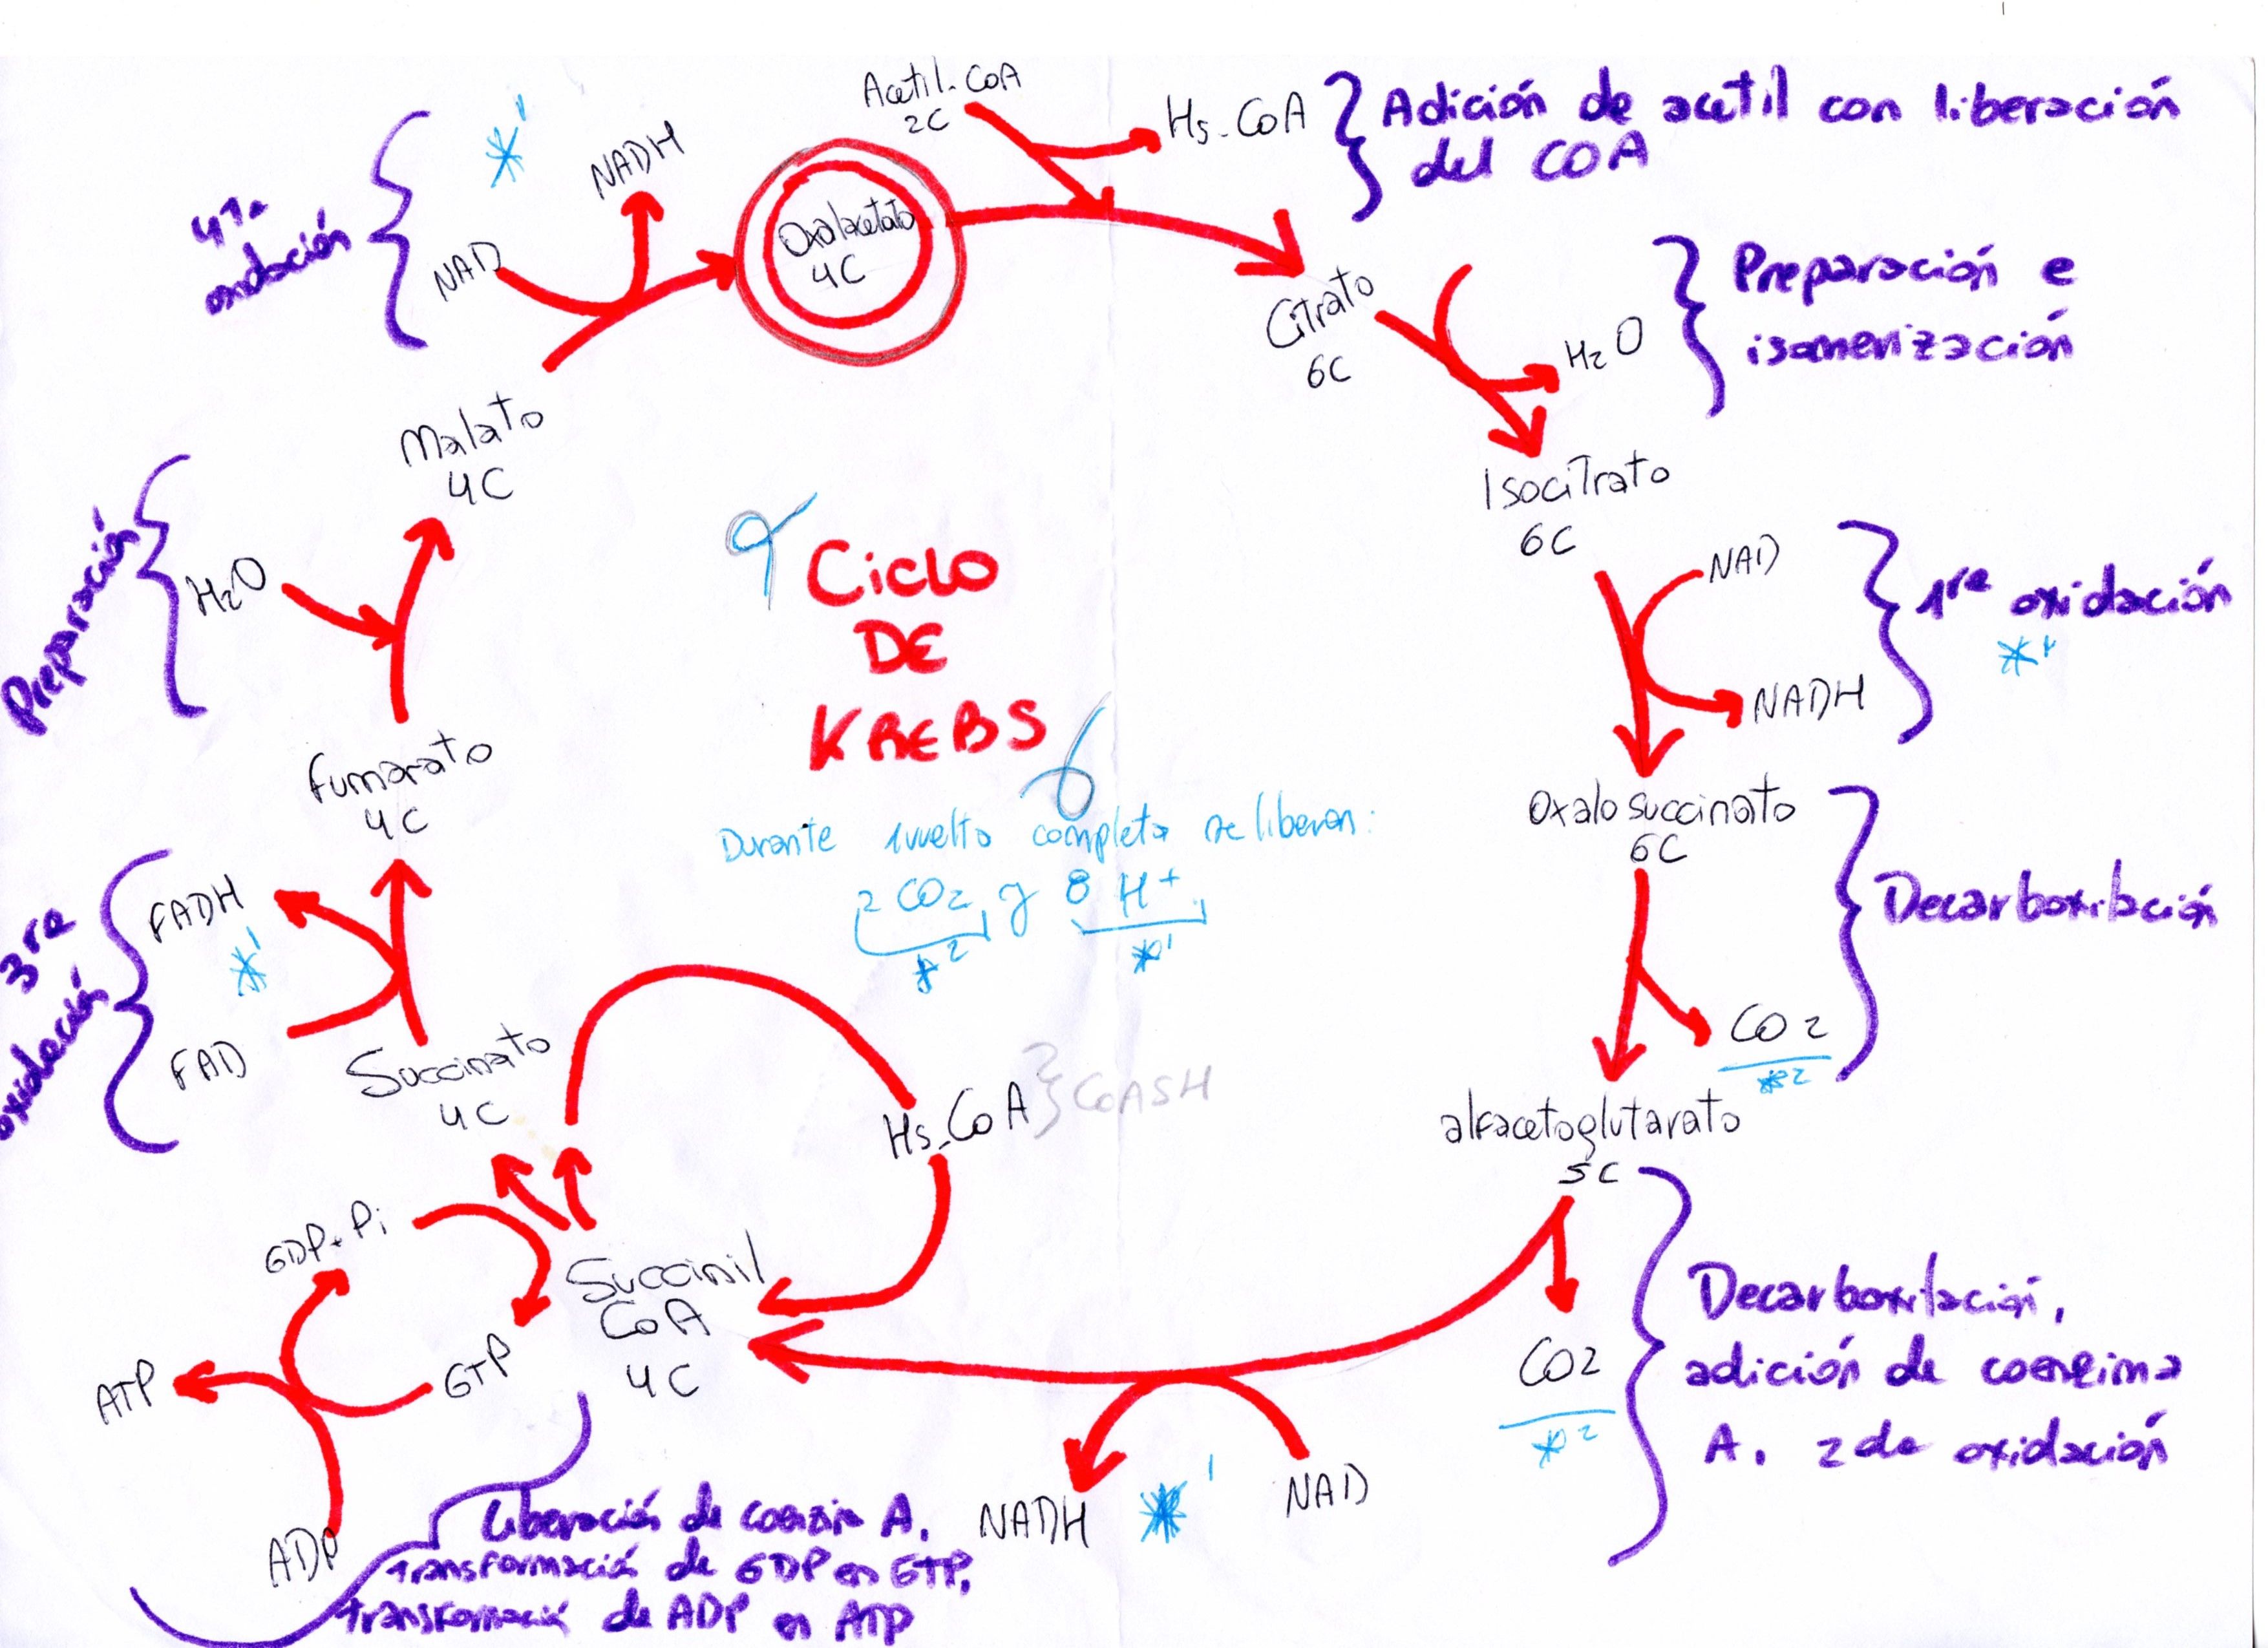 Acetil-CoA
2C
Hs-CoA
Adición de acetil con liberación
del COA
*1
NADH
4ta
oxidación
NAD
Oxalacetato
4C
Citrato
6C
H2O
Preparación e
isomerización
Malato
4C
Isocitrato
6C
NAD
1re oxidación
NADH
Preparación
H2O
Ciclo
DE
KREBS
Fumarato
4C
Oxalo succinato
6C
Durante 1 vuelta completa se liberan:
2 CO2 y 8 H+
*2
*1
Decarboxilación
3re
oxidación
FADH
*1
FAD
Succinato
4C
CO2
*2
Hs-CoA
COASH
alfacetoglutarato
5C
GDP+Pi
Succinil
CoA
4C
GTP
ATP
ADP
CO2
*2
Decarboxilación,
adición de coenzima
A. 2da oxidación
NADH
*1
NAD
Liberación de coenzim A.
transformació de GDP en GTP,
transformació de ADP en ATP